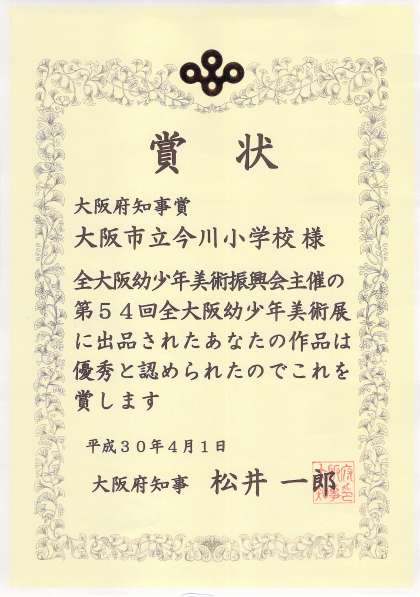 賞状
大阪府知事賞
大阪市立今川小学校 様
全大阪幼少年美術振興会主催の
第54回全大阪幼少年美術展
に出品されたあなたの作品は
優秀と認められたのでこれを
賞します
平成30年4月1日
大阪府知事 松井 一郎